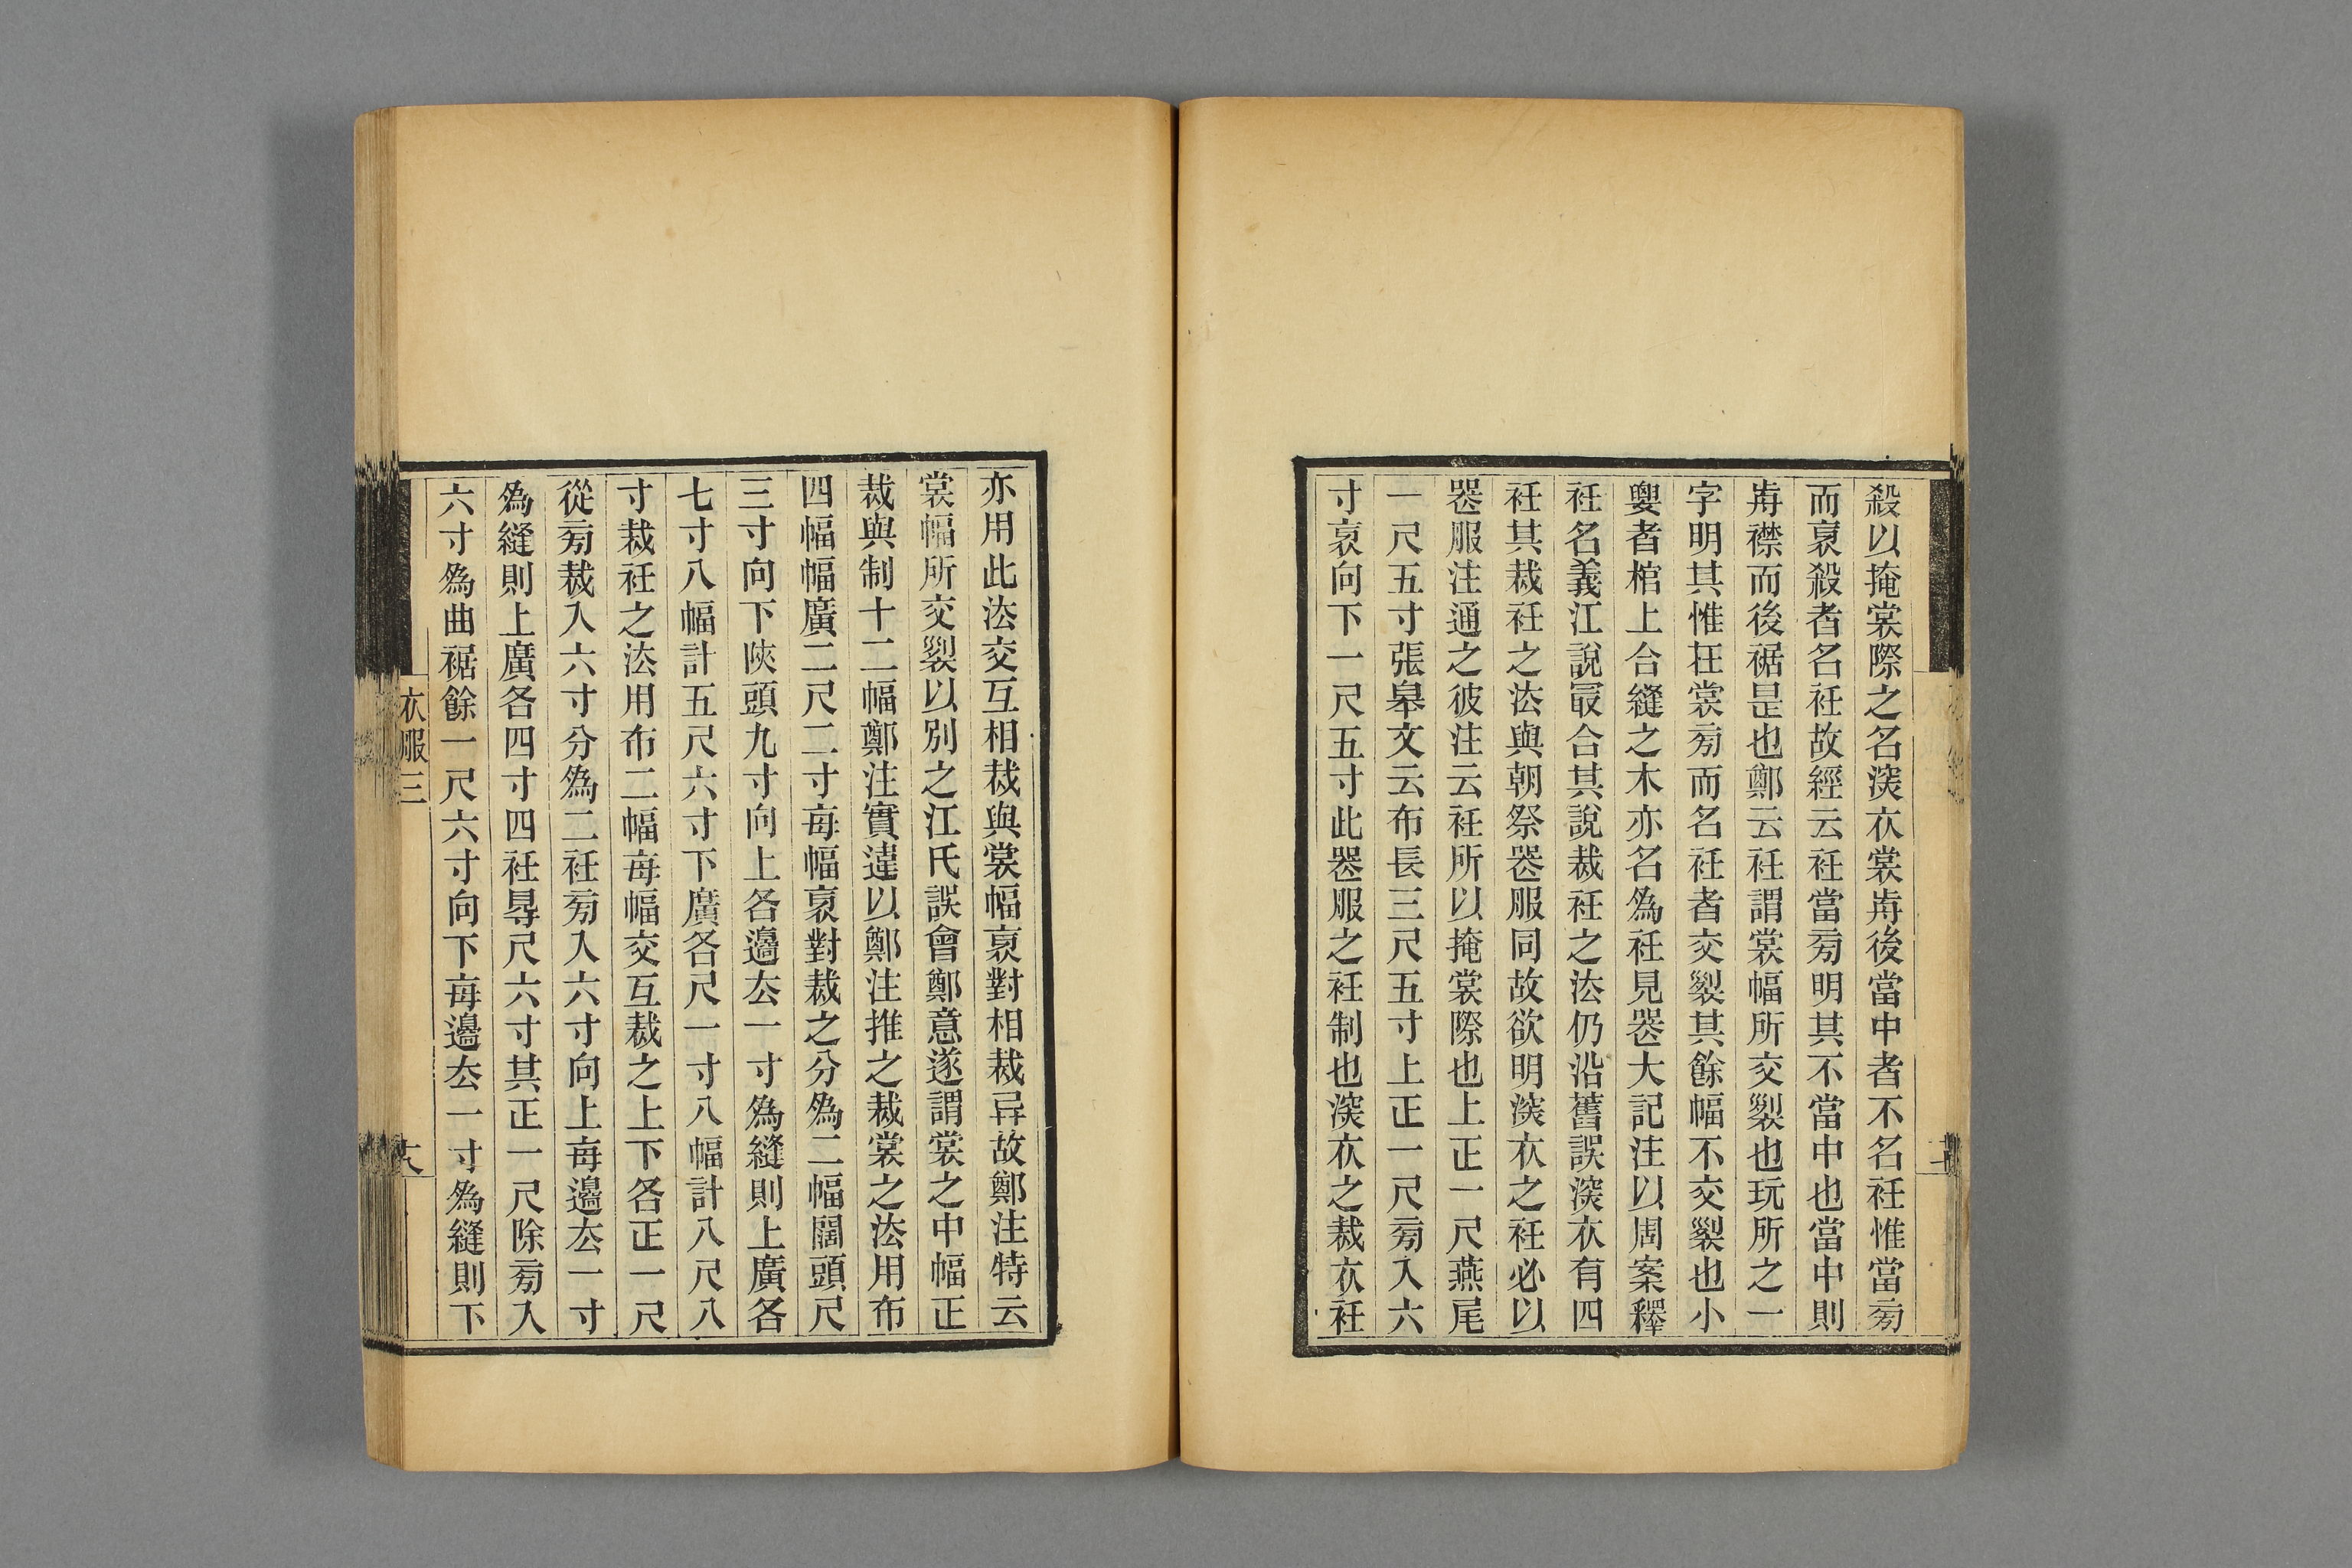 殺以掩裳際之名深衣裳歬後當中者不名衽惟當㫄
而衺殺者名衽故經云衽當㫄明其不當中也當中則
歬襟而後裾是也鄭云衽謂裳幅所交裂也玩所之一
字明其惟在裳㫄而名衽者交裂其餘幅不交裂也小
要者棺上合縫之木亦名爲衽見喪大記注以周案釋
衽名義江說最合其說裁衽之法仍沿舊誤深衣有四
衽其裁衽之法與朝祭喪服同故欲明深衣之衽必以
喪服注通之彼注云衽所以掩裳際也上正一尺燕尾
一尺五寸張皋文云布長三尺五寸上正一尺㫄入六
寸衺向下一尺五寸此喪服之衽制也深衣之裁衣衽
亦用此法交互相裁與裳幅衺對相裁异故鄭注特云
裳幅所交裂以別之江氏誤會鄭意遂謂裳之中幅正
裁與制十二幅鄭注實違以鄭注推之裁裳之法用布
四幅幅廣二尺二寸每幅衺對裁之分爲二幅闊頭尺
三寸向下陝頭九寸向上各邊厺一寸爲縫則上廣各
七寸八幅計五尺六寸下廣各尺一寸八幅計八尺八
寸裁衽之法用布二幅每幅交互裁之上下各正一尺
從㫄裁入六寸分爲二衽㫄入六寸向上每邊厺一寸
爲縫則上廣各四寸四衽㝵尺六寸其正一尺除㫄入
六寸爲曲裾餘一尺六寸向下每邊厺一寸爲縫則下
衣服三
十八